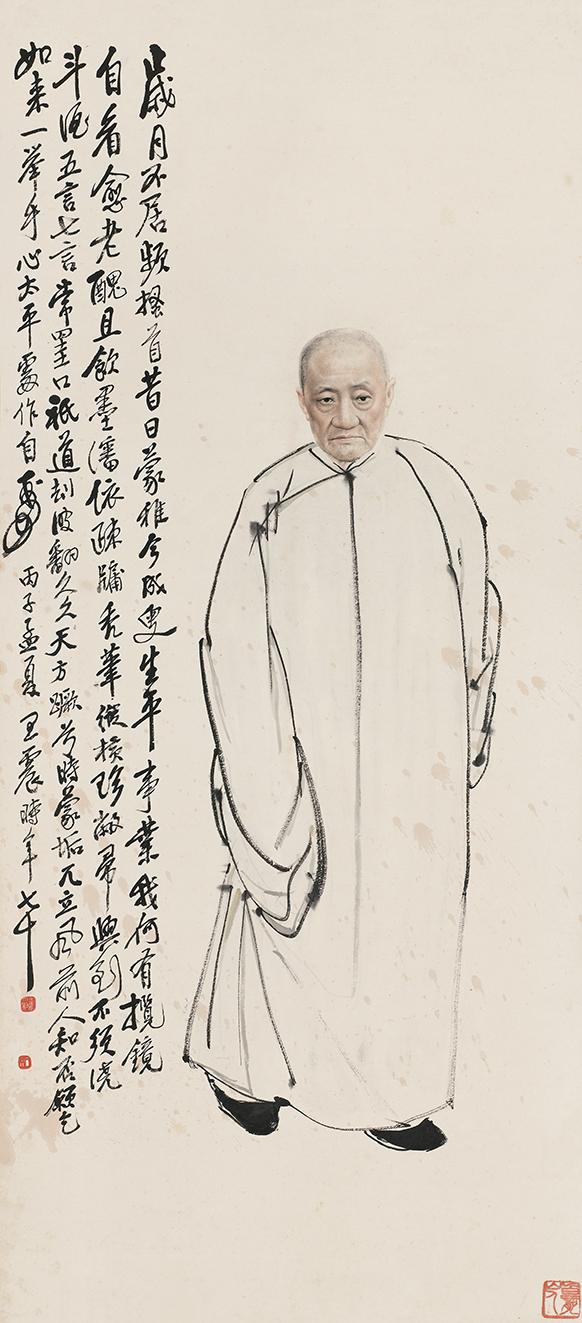 歲月不居頻搔首昔日蒙稚今成叟生平事業我何有攬鏡
自看愈老醜且飲墨瀋依疎牖禿筆縱橫珍敝帚興到不須澆
斗酒五言七言常罣口祇道刦波翻久久天方蹶兮時蒙垢兀立風前人知否願乞
如來一舉手心太平處作自壽丙子孟夏王震時年七十